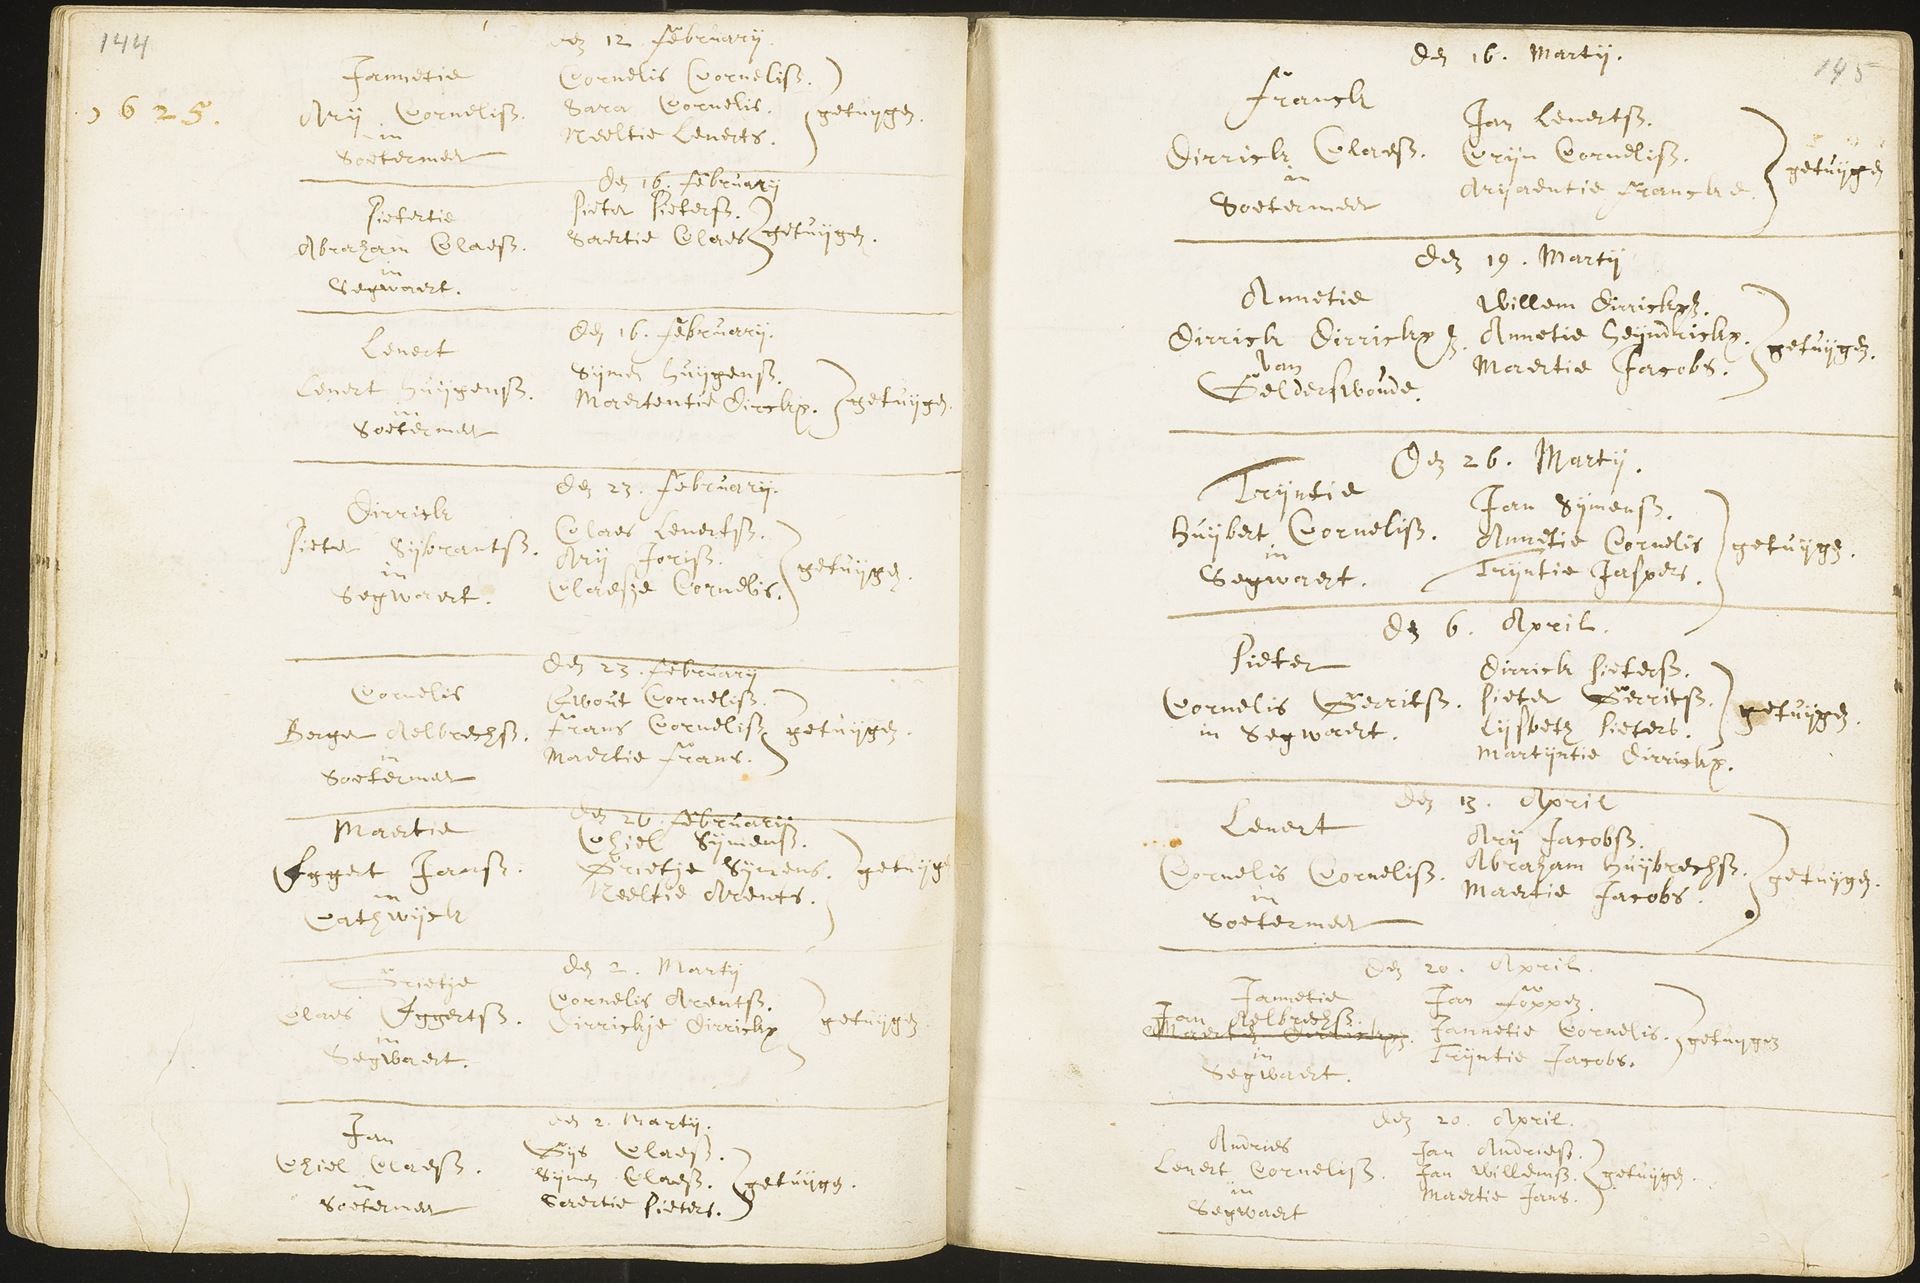 144
1625.
den 12 February.
Jannetie
Ary Cornelisz.
in
Soetermeer
Cornelis Cornelisz.
Sara Cornelis.
Neeltie Lenerts.
getuygen.
den 16. February
Pietertie
Abraham Claesz.
in
Segwaert.
Pieter Pietersz.
Saertie Claes
getuijgen.
den 16. February.
Lenert
Lenert Huijgensz.
in
Soetermeer
Symen Huijgensz.
Maertentie Dirckx.
getuijgen.
den 23. February.
Dirrick
Pieter Sijbrantsz.
in
Segwaert.
Claes Lenertsz.
Ary Jorisz.
Claesje Cornelis.
getuijgen.
den 23. February
Cornelis
Berger Aelbrechsz.
in
Soetermeer
Ewout Cornelisz.
Frans Cornelisz
Maertie Frans.
getuijgen.
den 26. February
Maertie
Eggert Jansz.
in
Cathwijck
Chiel Sijmensz.
Grietje Symens.
Neeltie Arents.
getuijg
den 2. Martij
Grietje
Claes Eggertsz.
in
Segwaert.
Cornelis Arentsz.
Dirrickje Dirrickx
getuijgen
den 2. Martij.
Jan
Chiel Claesz.
in
Soetermeer
Gijs Claesz.
Symen Claesz.
Saertie Pieters.
getuijgen.
145
den 16. Martij.
Franck
Dirrick Claesz.
in
Soetermeer
Jan Lenertsz.
Crijn Cornelisz.
Arijaentie Francke.
getuijgen
den 19. Martij
Annetie
Dirrick Dirrickxz.
van
Gelderswoude.
Willem Dirrickxz.
Annetie Heyndrickx.
Maertie Jacobs.
getuijgen.
Den 26. Martij.
Trijntie
Huijbert Cornelisz.
in
Segwaert.
Jan Symensz.
Annetie Cornelis
Trijntie Jaspers.
getuijgen.
den 6. April.
Pieter
Cornelis Gerritsz.
in Segwaert.
Dirrick Pietersz.
Pieter Gerritsz.
Lijsbeth Pieters.
Martijntie Dirrickx.
getuijgen.
den 13. April
Lenert
Cornelis Cornelisz.
in
Soetermeer
Ary Jacobsz.
Abraham Huijbrechsz.
Maertie Jacobs.
getuijgen.
den 20. April.
Jannetie
Jan Aelbrechsz.
in
Segwaert.
Jan Foppen.
Jannetie Cornelis.
Trijntie Jacobs.
getuygen
den 20. April.
Andries
Lenert Cornelisz.
in
Segwaert
Jan Andriesz.
Jan Willemsz.
Maertie Jans.
getuijgen.